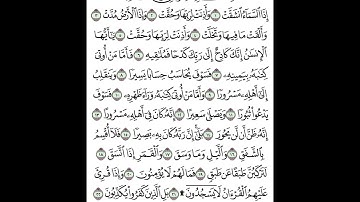 إِذَا ٱلسَّمَآءُ ٱنشَقَّتۡ ١ وَأَذِنَتۡ لِرَبِّهَا وَحُقَّتۡ ٢ وَإِذَا ٱلۡأَرۡضُ مُدَّتۡ ٣
وَأَلۡقَتۡ مَا فِيهَا وَتَخَلَّتۡ ٤ وَأَذِنَتۡ لِرَبِّهَا وَحُقَّتۡ ٥ يَٰٓأَيُّهَا
ٱلۡإِنسَٰنُ إِنَّكَ كَادِحٌ إِلَىٰ رَبِّكَ كَدۡحٗا فَمُلَٰقِيهِ ٦ فَأَمَّا مَنۡ أُوتِيَ
كِتَٰبَهُۥ بِيَمِينِهِۦ ٧ فَسَوۡفَ يُحَاسَبُ حِسَابٗا يَسِيرٗا ٨ وَيَنقَلِبُ
إِلَىٰٓ أَهۡلِهِۦ مَسۡرُورٗا ٩ وَأَمَّا مَنۡ أُوتِيَ كِتَٰبَهُۥ وَرَآءَ ظَهۡرِهِۦ ١٠ فَسَوۡفَ
يَدۡعُواْ ثُبُورٗا ١١ وَيَصۡلَىٰ سَعِيرًا ١٢ إِنَّهُۥ كَانَ فِيٓ أَهۡلِهِۦ مَسۡرُورًا ١٣
إِنَّهُۥ ظَنَّ أَن لَّن يَحُورَ ١٤ بَلَىٰٓۚ إِنَّ رَبَّهُۥ كَانَ بِهِۦ بَصِيرٗا ١٥ فَلَآ أُقۡسِمُ
بِٱلشَّفَقِ ١٦ وَٱلَّيۡلِ وَمَا وَسَقَ ١٧ وَٱلۡقَمَرِ إِذَا ٱتَّسَقَ ١٨
لَتَرۡكَبُنَّ طَبَقًا عَن طَبَقٖ ١٩ فَمَا لَهُمۡ لَا يُؤۡمِنُونَ ٢٠ وَإِذَا قُرِئَ
عَلَيۡهِمُ ٱلۡقُرۡءَانُ لَا يَسۡجُدُونَۤ۩ ٢١ بَلِ ٱلَّذِينَ كَفَرُواْ يُكَذِّبُونَ ٢٢